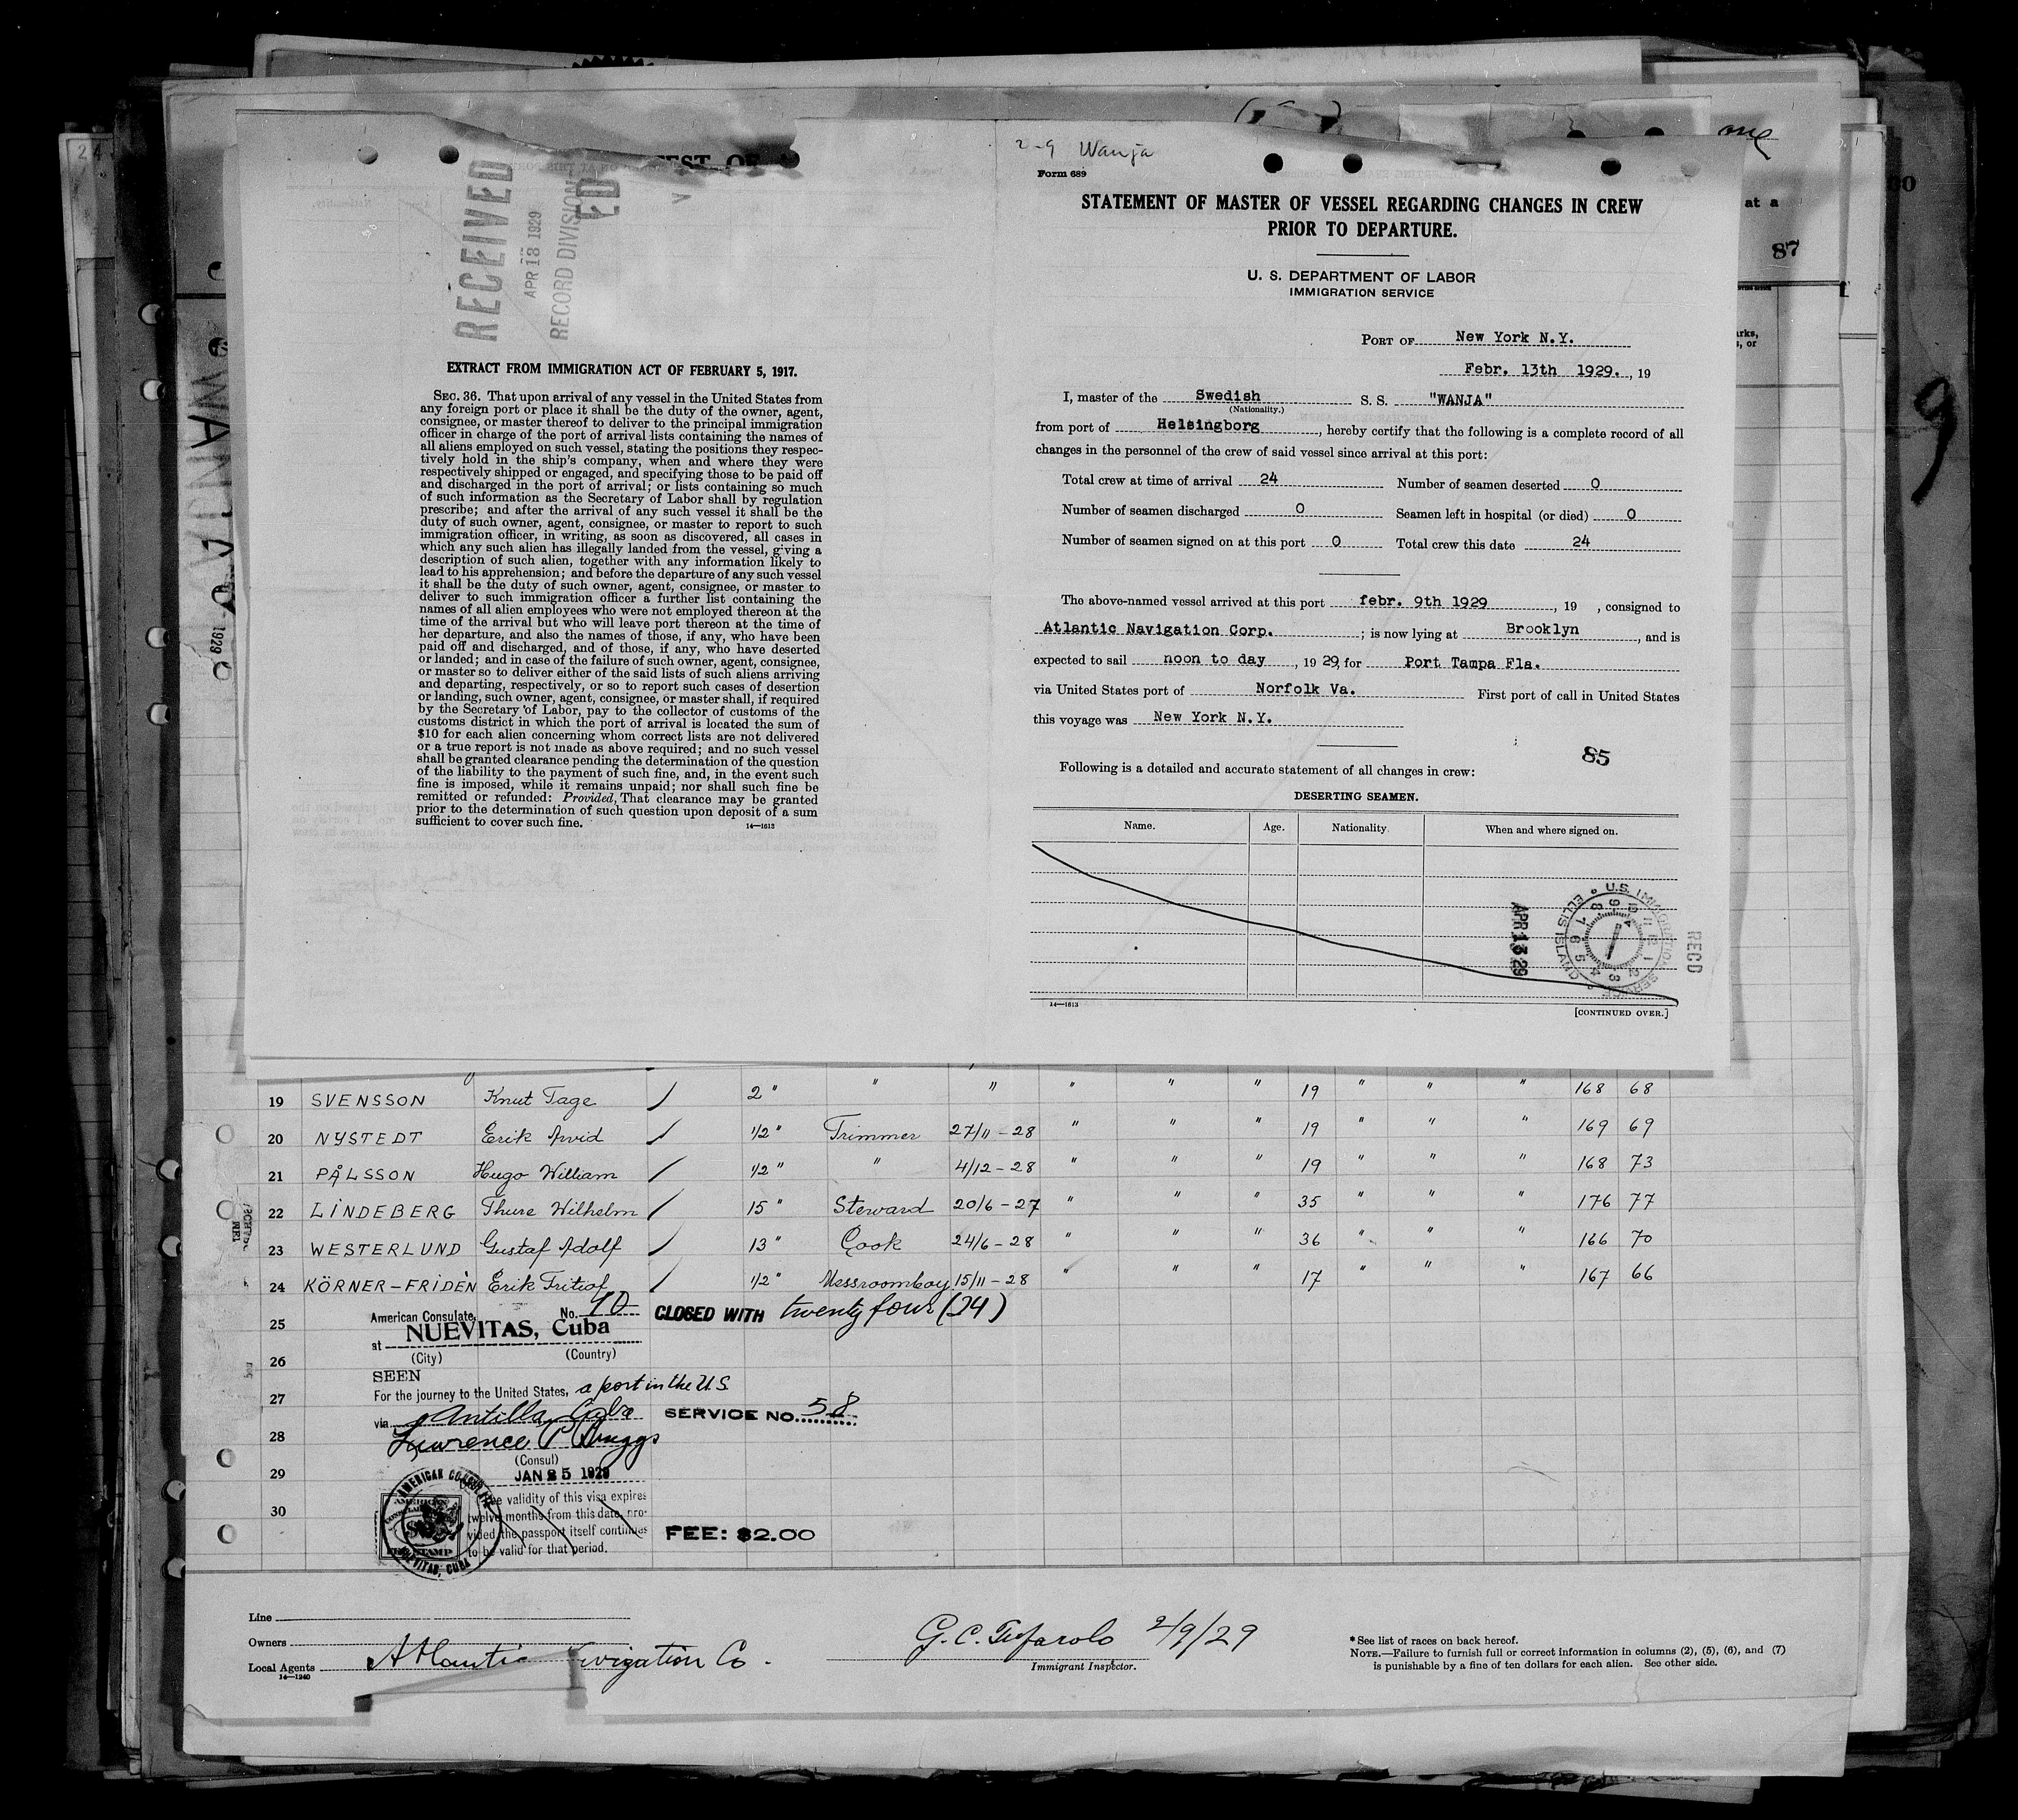 24
RECEIVED
APR 18 1929
RECORD DIVISION
EXTRACT FROM IMMIGRATION ACT OF FEBRUARY 5, 1917.
SEC. 36. That upon arrival of any vessel in the United States from
any foreign port or place it shall be the duty of the owner, agent,
consignee, or master thereof to deliver to the principal immigration
officer in charge of the port of arrival lists containing the names of
all aliens employed on such vessel, stating the positions they respec-
tively hold in the ship's company, when and where they were
respectively shipped or engaged, and specifying those to be paid off
and discharged in the port of arrival; or lists containing so much
of such information as the Secretary of Labor shall by regulation
prescribe; and after the arrival of any such vessel it shall be the
duty of such owner, agent, consignee, or master to report to such
immigration officer, in writing, as soon as discovered, all cases in
which any such alien has illegally landed from the vessel, giving a
description of such alien, together with any information likely to
lead to his apprehension; and before the departure of any such vessel
it shall be the duty of such owner, agent, consignee, or master to
deliver to such immigration officer a further list containing the
names of all alien employees who were not employed thereon at the
time of the arrival but who will leave port thereon at the time of
her departure, and also the names of those, if any, who have been
paid off and discharged, and of those, if any, who have deserted
or landed; and in case of the failure of such owner, agent, consignee,
or master so to deliver either of the said lists of such aliens arriving
and departing, respectively, or so to report such cases of desertion
or landing, such owner, agent, consignee, or master shall, if required
by the Secretary of Labor, pay to the collector of customs of the
customs district in which the port of arrival is located the sum of
$10 for each alien concerning whom correct lists are not delivered
or a true report is not made as above required; and no such vessel
shall be granted clearance pending the determination of the question
of the liability to the payment of such fine, and, in the event such
fine is imposed, while it remains unpaid; nor shall such fine be
remitted or refunded: Provided, That clearance may be granted
prior to the determination of such question upon deposit of a sum
sufficient to cover such fine.
14—1613
2-9 Wanja
Form 689
STATEMENT OF MASTER OF VESSEL REGARDING CHANGES IN CREW
PRIOR TO DEPARTURE.
U. S. DEPARTMENT OF LABOR
IMMIGRATION SERVICE
PORT OF New York N.Y.
Febr. 13th 1929. , 19
I, master of the Swedish S. S. "WANJA"
(Nationality.)
from port of Helsingborg , hereby certify that the following is a complete record of all
changes in the personnel of the crew of said vessel since arrival at this port:
Total crew at time of arrival 24 Number of seamen deserted 0
Number of seamen discharged 0 Seamen left in hospital (or died) 0
Number of seamen signed on at this port 0 Total crew this date 24
The above-named vessel arrived at this port febr. 9th 1929 , 19 , consigned to
Atlantic Navigation Corp. ; is now lying at Brooklyn , and is
expected to sail noon to day , 19 29, for Port Tampa Fla.
via United States port of Norfolk Va. First port of call in United States
this voyage was New York N.Y.
85
Following is a detailed and accurate statement of all changes in crew:
DESERTING SEAMEN.
Name. Age. Nationality. When and where signed on.
APR 13 29
U.S. IMMIGRATION SERVICE ELLIS ISLAND
RECD
14—1613
[CONTINUED OVER.]
at a
87
9
1929
19 SVENSSON Knut Tage / 2 " " " " " " 19 " " " 168 68
20 NYSTEDT Erik Arvid / 1/2 " Trimmer 27/11 - 28 " " " 19 " " " 169 69
21 PÅLSSON Hugo William / 1/2 " " 4/12 - 28 " " " 19 " " " 168 73
22 LINDEBERG Thure Wilhelm / 15 " Steward 20/6 - 27 " " " 35 " " " 176 77
23 WESTERLUND Gustaf Adolf / 13 " Cook 24/6 - 28 " " " 36 " " " 166 70
24 KÖRNER-FRIDÈN Erik Fritiof / 1/2 " Messroomboy 15/11 - 28 " " " 17 " " " 167 66
25
26
27
28
29
30
American Consulate, No. 90 CLOSED WITH twenty four (24)
at NUEVITAS, Cuba
(City) (Country)
SEEN
For the journey to the United States, a port in the U.S.
via Antilla, Cuba SERVICE NO. 58
Lawrence P Briggs
(Consul)
JAN 25 1929
The validity of this visa expires
twelve months from this date, pro-
vided the passport itself continues
to be valid for that period.
FEE: $2.00
AMERICAN CONSULATE NUEVITAS, CUBA
Line
Owners
Local Agents Atlantic Navigation Co.
14—1240
G. C. Tufarolo 2/9/29
Immigrant Inspector.
* See list of races on back hereof.
NOTE.—Failure to furnish full or correct information in columns (2), (5), (6), and (7)
is punishable by a fine of ten dollars for each alien. See other side.